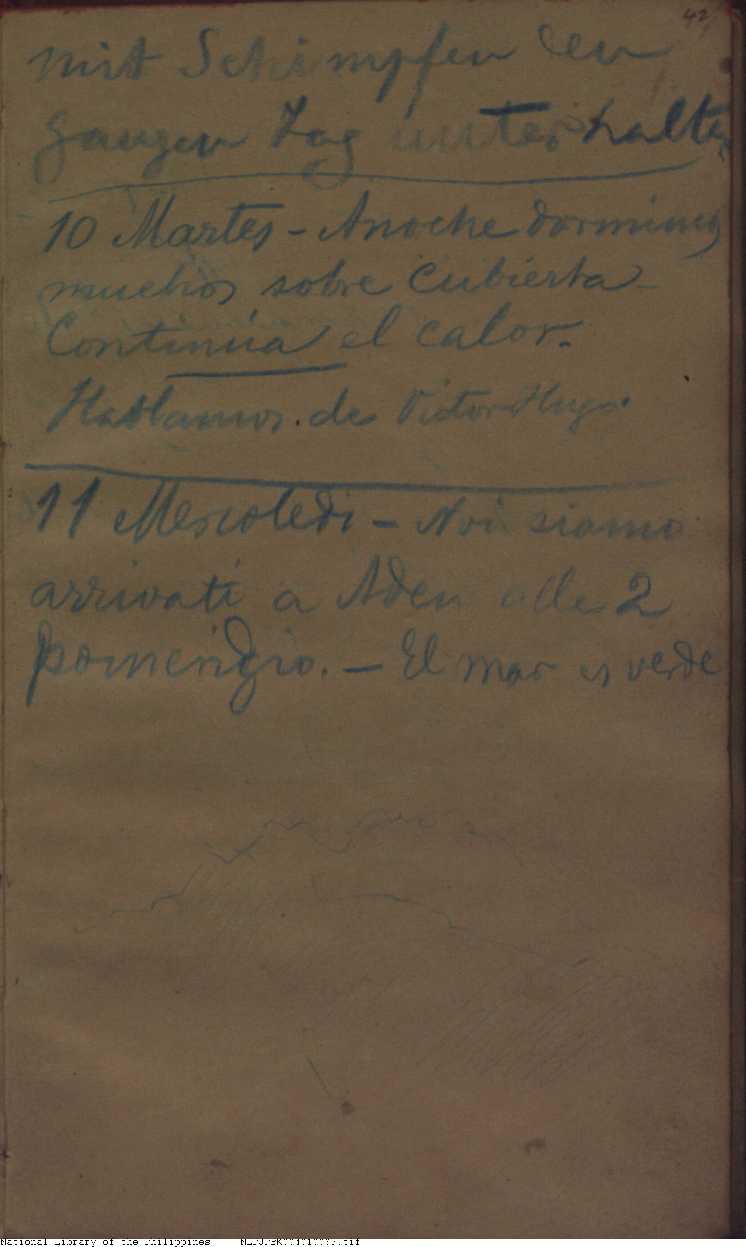 42
mit Schimpfen den
ganzen Tag unterhalten
10 Martes - Anoche dormimos
muchos sobre cubierta -
Continúa el calor.
Hablamos de Victor Hugo.
11 Mercoledi - Noi siamo
arrivati a Aden alle 2
pomerigio. - El mar es verde
National Library of the Philippines